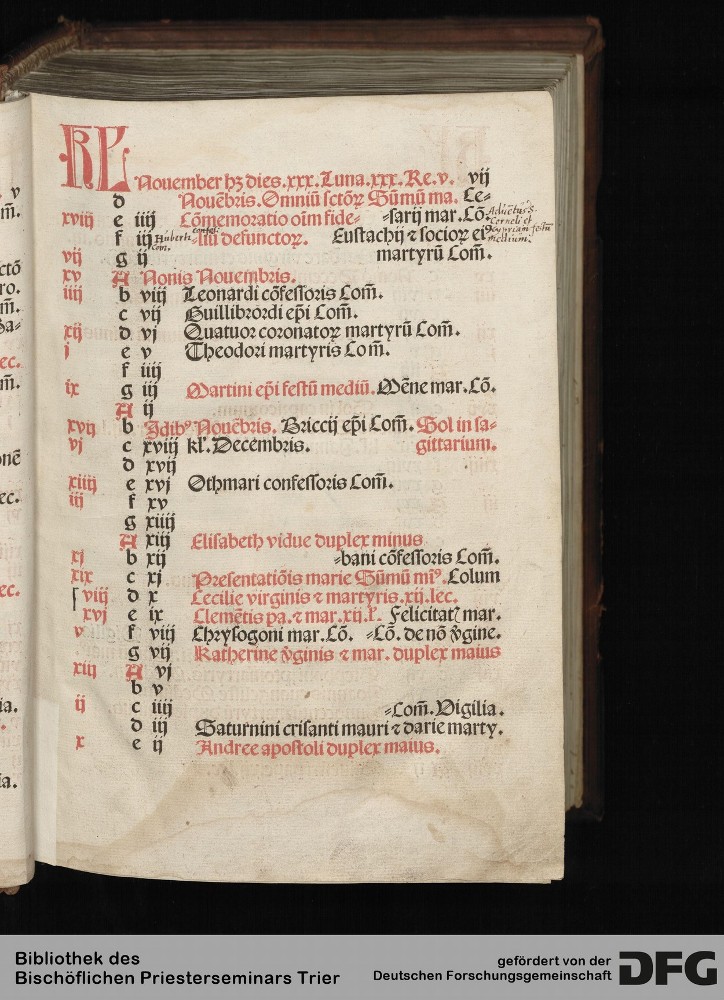 KL
Nouember hꝫ dies.xxx.Luna.xxx.Re.v. vij
d Nouēbris. Omniū sctōꝝ Sūmū ma. Ce-
xviij e iiij Cōmemoratio oīm fide- -sarij mar. Cō.
f iij Huberti confes. com. -liū defunctoꝝ. Eustachij ⁊ socioꝝ eiꝰ
vij g ij martyrū Com̄.
xv A Nonis Nouembris.
iiij b viij Leonardi cōfessoris Com̄.
c vij Guillibrordi ep̄i Com̄.
xij d vj Quatuor coronatoꝝ martyrū Com̄.
j e v Theodori martyris Com̄.
f iiij
ix g iij Martini ep̄i festū mediū. Mēne mar. Cō.
A ij
xvij b Idibꝰ Nouēbris. Briccij ep̄i Com̄. Sol in sa-
vj c xviij kl'. Decembris. gittarium.
d xvij
xiiij e xvj Othmari confessoris Com̄.
iij f xv
g xiiij
A xiij Elisabeth vidue duplex minus
xj b xij -bani cōfessoris Com̄.
xix c xj Presentatiōis marie Sūmū mīꝰ. Colum
viij d x Cecilie virginis ⁊ martyris. xij. lec.
xvj e ix Clemētis pa. ⁊ mar. xij. l'. Felicitatꝭ mar.
v f viij Chrysogoni mar. Cō. -Cō. de nō v̄gine.
g vij Katherine v̄ginis ⁊ mar. duplex maius
xiij A vj
b v
ij c iiij -Com̄. Vigilia.
d iij Saturnini crisanti mauri ⁊ darie marty.
x e ij Andree apostoli duplex maius.
Bibliothek des
Bischöflichen Priesterseminars Trier
gefördert von der
Deutschen Forschungsgemeinschaft
DFG